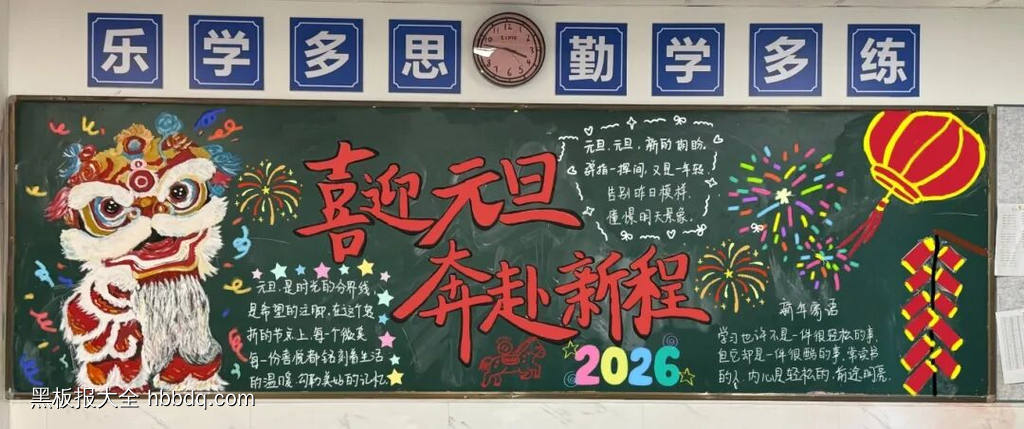 乐学多思 勤学多练
喜迎元旦
奔赴新程
元旦,元旦,新的期盼。
弹指一挥间,又是一年轮,
告别昨日模样,
憧憬明天景象。
元旦,是时光的分界线,
是希望的注脚,在这个
折的节点上,每个微笑
每一份喜悦都铭刻着生活
的温暖,勾勒美好的记忆
2026
新年寄语
学习也许不是一件很轻松的事,
但它却是一件很酷的事,常读书
的人,内心是轻松的,前途明亮.
黑板报大全 hbbdq.com